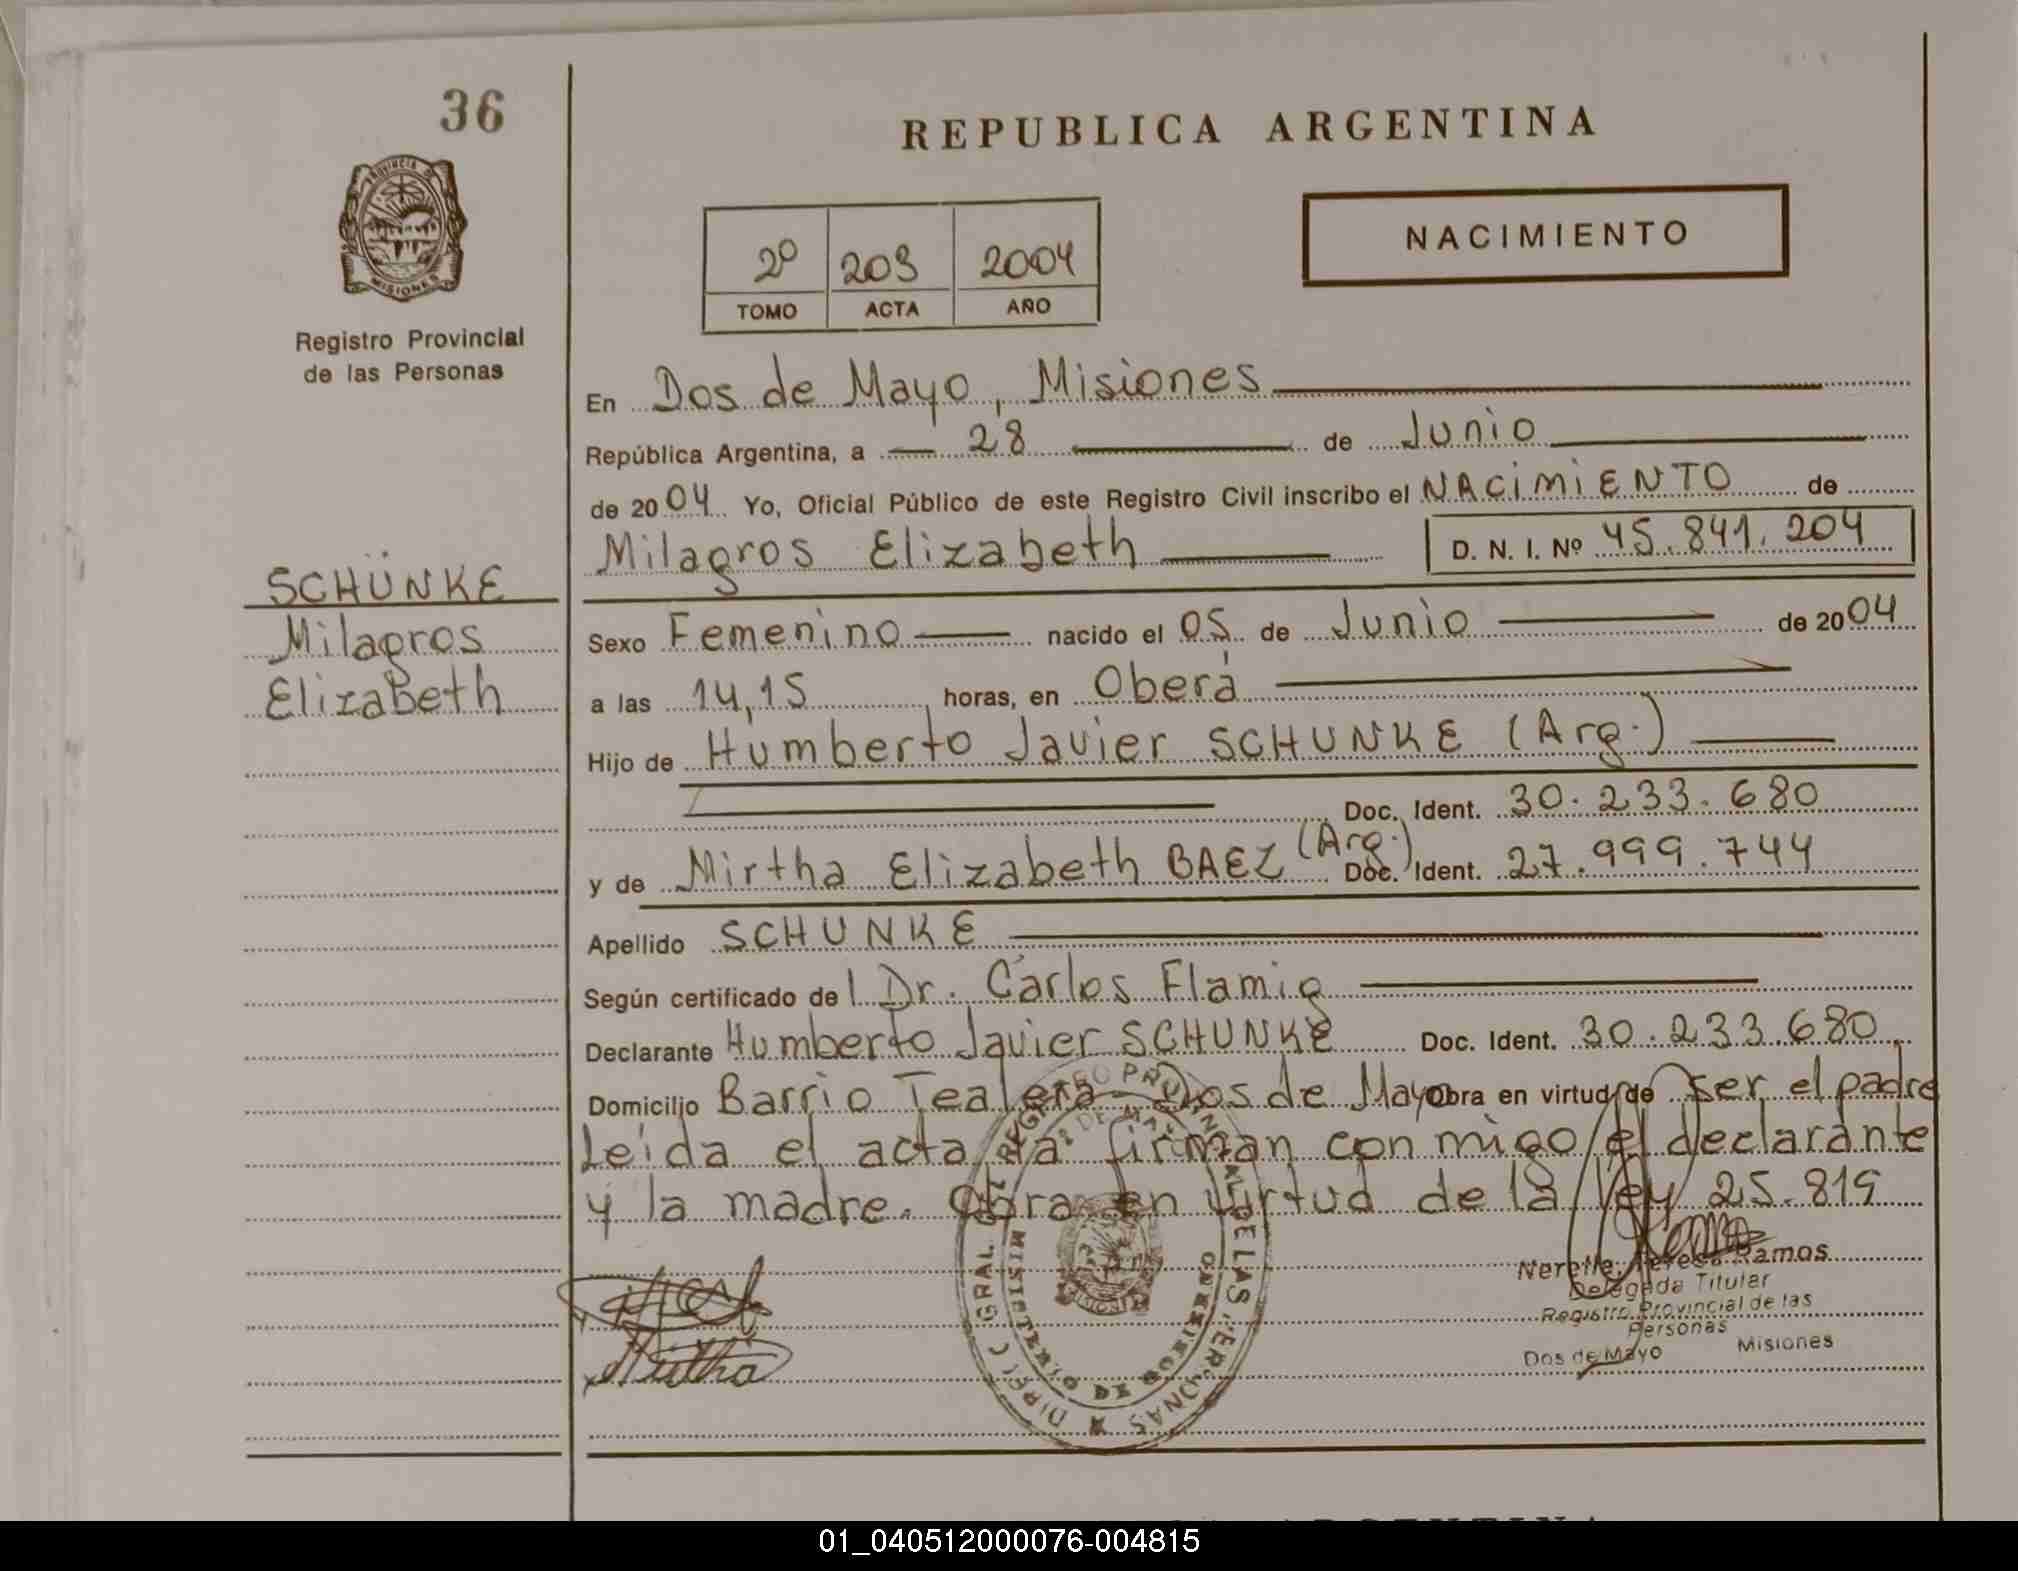 36
REPUBLICA ARGENTINA
PROVINCIA DE
MISIONES
Registro Provincial
de las Personas
NACIMIENTO
2º 203 2004
TOMO ACTA AÑO
En Dos de Mayo, Misiones
República Argentina, a 28 de Junio
de 2004 Yo, Oficial Público de este Registro Civil inscribo el NACIMIENTO de
Milagros Elizabeth D. N. I. Nº 45.841.204
SCHÜNKE
Milagros
Elizabeth
Sexo Femenino nacido el 05 de Junio de 2004
a las 14,15 horas, en Oberá
Hijo de Humberto Javier SCHUNKE (Arg.)
Doc. Ident. 30.233.680
y de Mirtha Elizabeth BAEZ (Arg.) Doc. Ident. 27.999.744
Apellido SCHUNKE
Según certificado del Dr. Carlos Flamig
Declarante Humberto Javier SCHUNKE Doc. Ident. 30.233.680
Domicilio Barrio Tealera Dos de Mayo obra en virtud de ser el padre
Leída el acta la firman con migo el declarante
y la madre. Obra en virtud de la ley 25.819
Ramos
Delegada Titular
Registro Provincial de las
Personas
Dos de Mayo Misiones
Mirtha
MINISTERIO DE GOBIERNO
01_040512000076-004815